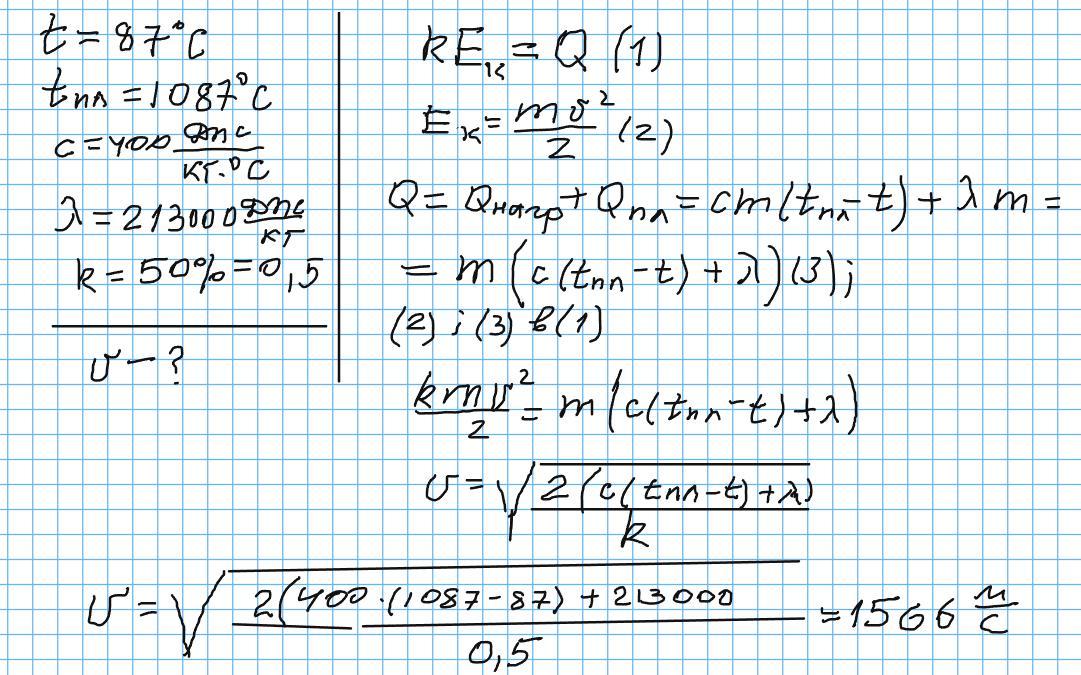 t = 87°C
tпл = 1087°C
c = 400 Дж/кг·°C
λ = 213000 Дж/кг
k = 50% = 0,5
υ — ?
kEк = Q (1)
Eк = mυ²/2 (2)
Q = Qнагр + Qпл = cm(tпл - t) + λm =
= m(c(tпл - t) + λ) (3);
(2) і (3) в (1)
kmυ²/2 = m(c(tпл - t) + λ)
υ = √(2(c(tпл - t) + λ)/k)
υ = √(2(400·(1087 - 87) + 213000/0,5) = 1566 м/с